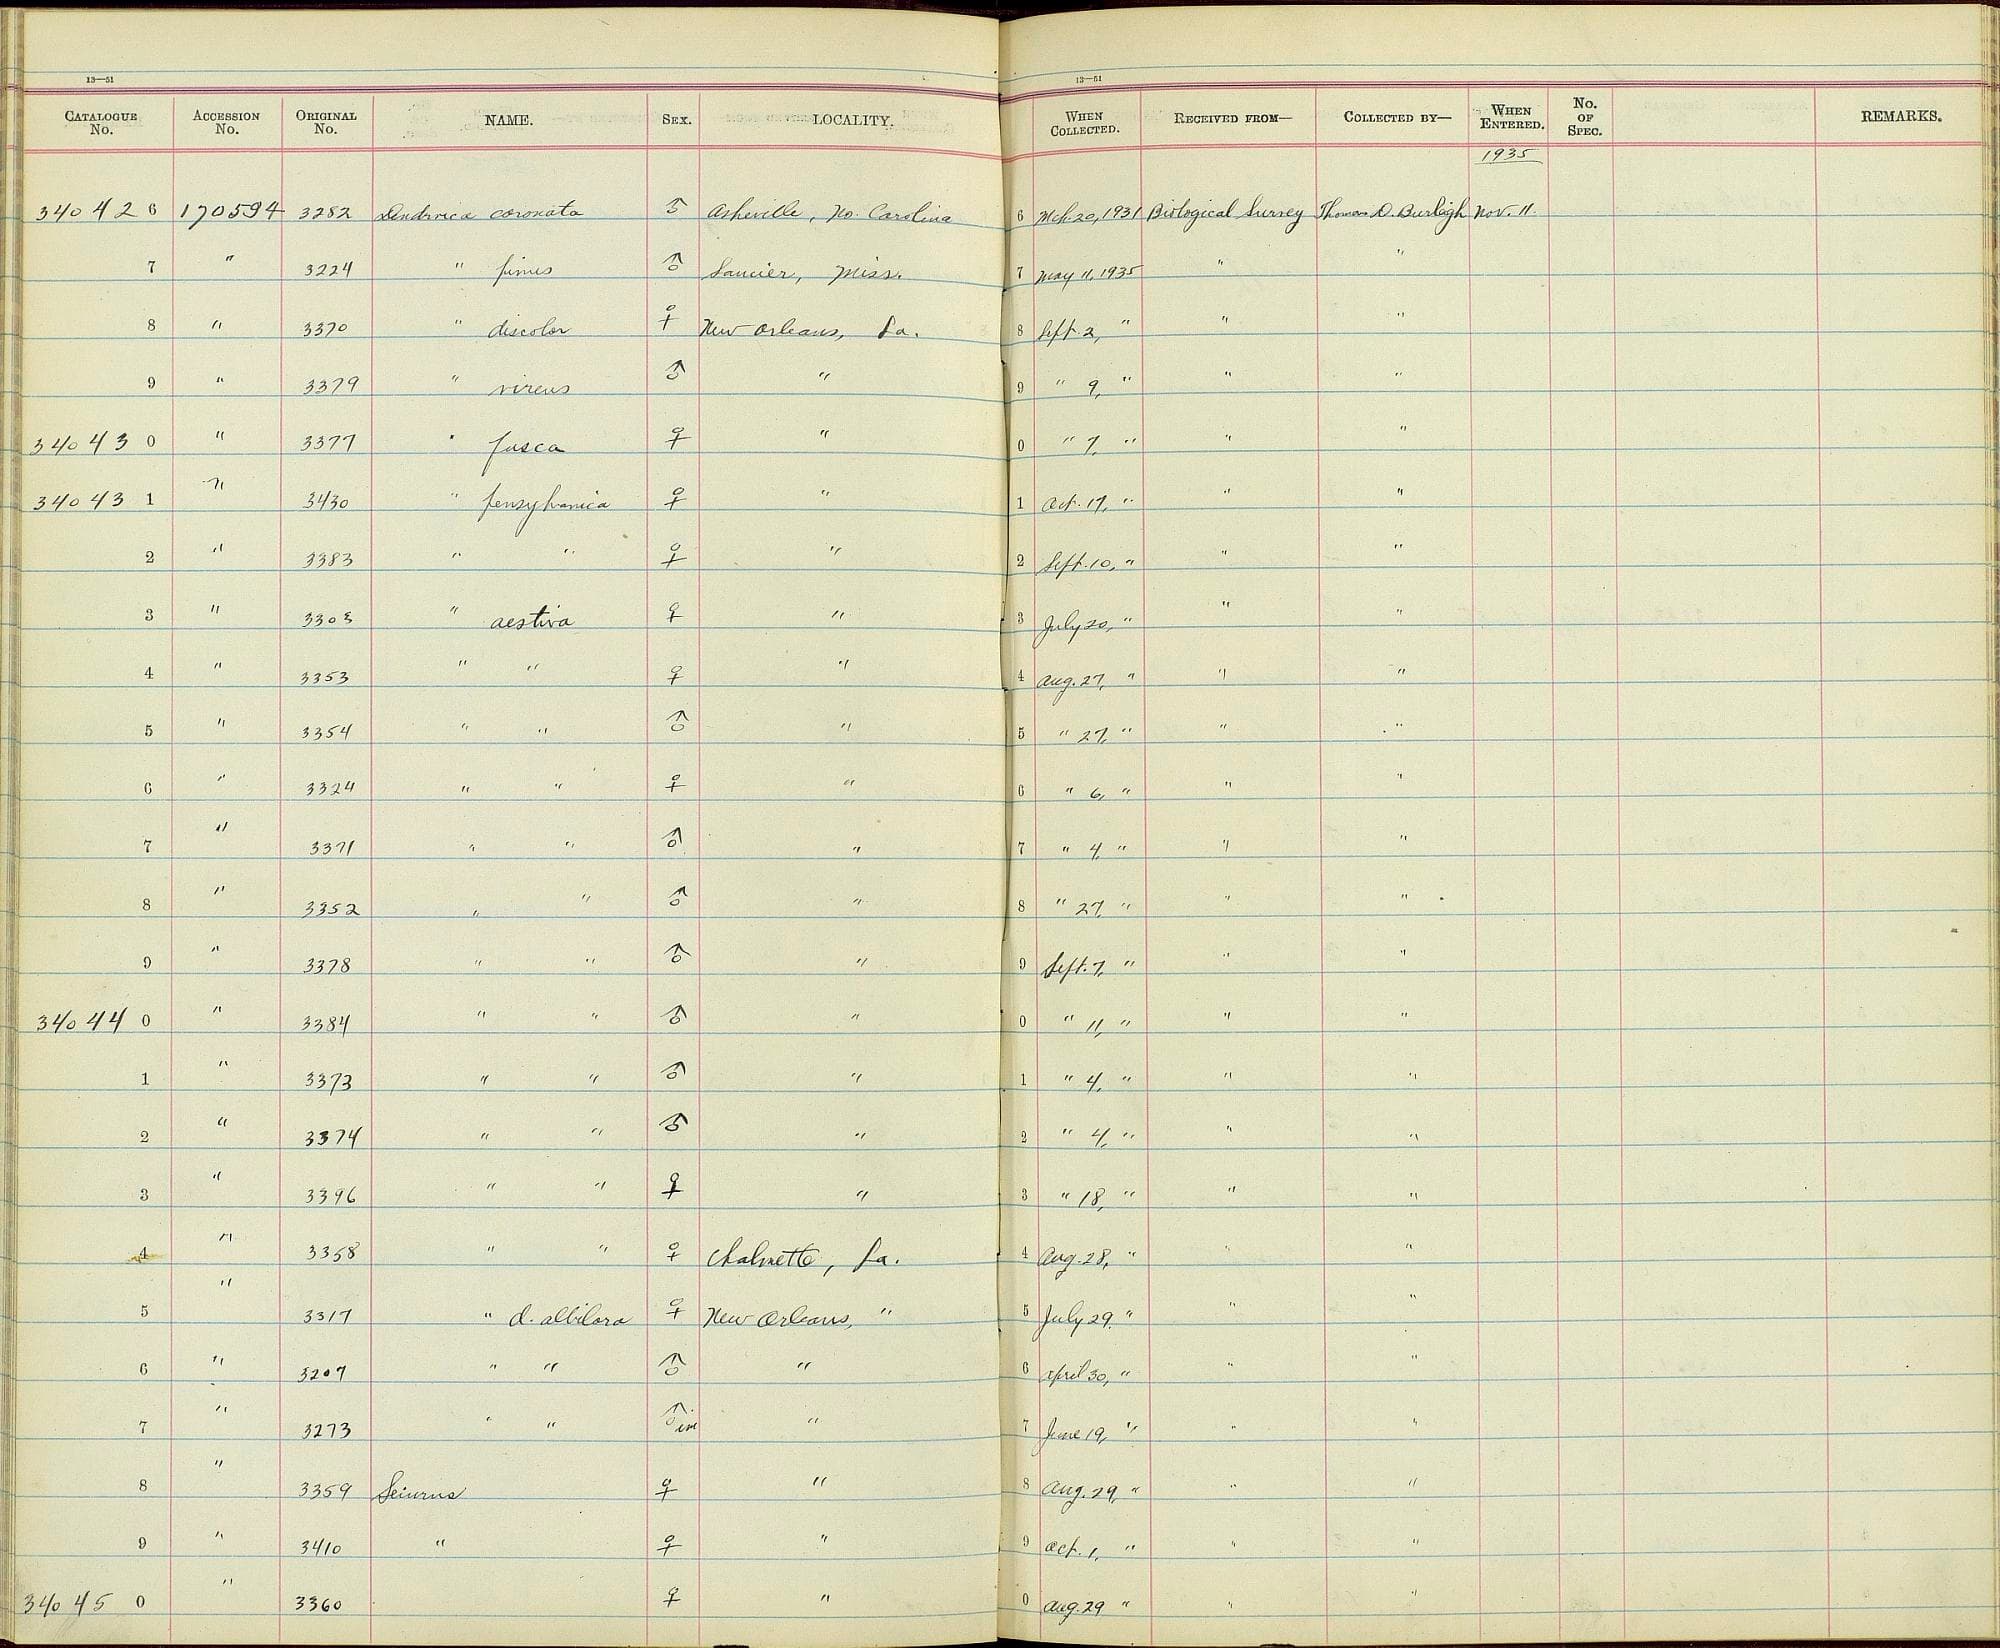 13—51 13—51
CATALOGUE No. ACCESSION No. ORIGINAL No. NAME. SEX. LOCALITY. WHEN COLLECTED. RECEIVED FROM— COLLECTED BY— WHEN ENTERED. No. OF SPEC. REMARKS.
1935
340426 170594 3282 Dendroica coronata ♂ Asheville, No. Carolina 6 Mch. 20, 1931 Biological Survey Thomas D. Burleigh Nov. 11.
7 " 3224 " pinus ♂ Saucier, Miss. 7 May 11, 1935 " "
8 " 3370 " discolor ♀ New Orleans, La. 8 Sept. 2, " " "
9 " 3379 " virens ♂ " 9 " 9, " " "
340430 " 3377 " fusca ♀ " 0 " 7, " " "
340431 " 3430 " pensylvanica ♀ " 1 Oct. 17, " " "
2 " 3383 " " ♀ " 2 Sept. 10, " " "
3 " 3303 " aestiva ♀ " 3 July 20, " " "
4 " 3353 " " ♀ " 4 Aug. 27, " " "
5 " 3354 " " ♂ " 5 " 27, " " "
6 " 3324 " " ♀ " 6 " 6, " " "
7 " 3371 " " ♂ " 7 " 4, " " "
8 " 3352 " " ♂ " 8 " 27, " " "
9 " 3378 " " ♂ " 9 Sept. 7, " " "
340440 " 3384 " " ♂ " 0 " 11, " " "
1 " 3373 " " ♂ " 1 " 4, " " "
2 " 3374 " " ♂ " 2 " 4, " " "
3 " 3396 " " ♀ " 3 " 18, " " "
4 " 3358 " " ♀ Chalmette, La. 4 Aug. 28, " " "
5 " 3317 " d. albilora ♀ New Orleans, " 5 July 29. " " "
6 " 3207 " " ♂ " 6 April 30, " " "
7 " 3273 " " ♂ im " 7 June 19, " " "
8 " 3359 Seiurus ♀ " 8 Aug. 29, " " "
9 " 3410 " ♀ " 9 Oct. 1, " " "
340450 " 3360 ♀ " 0 Aug. 29 " " "